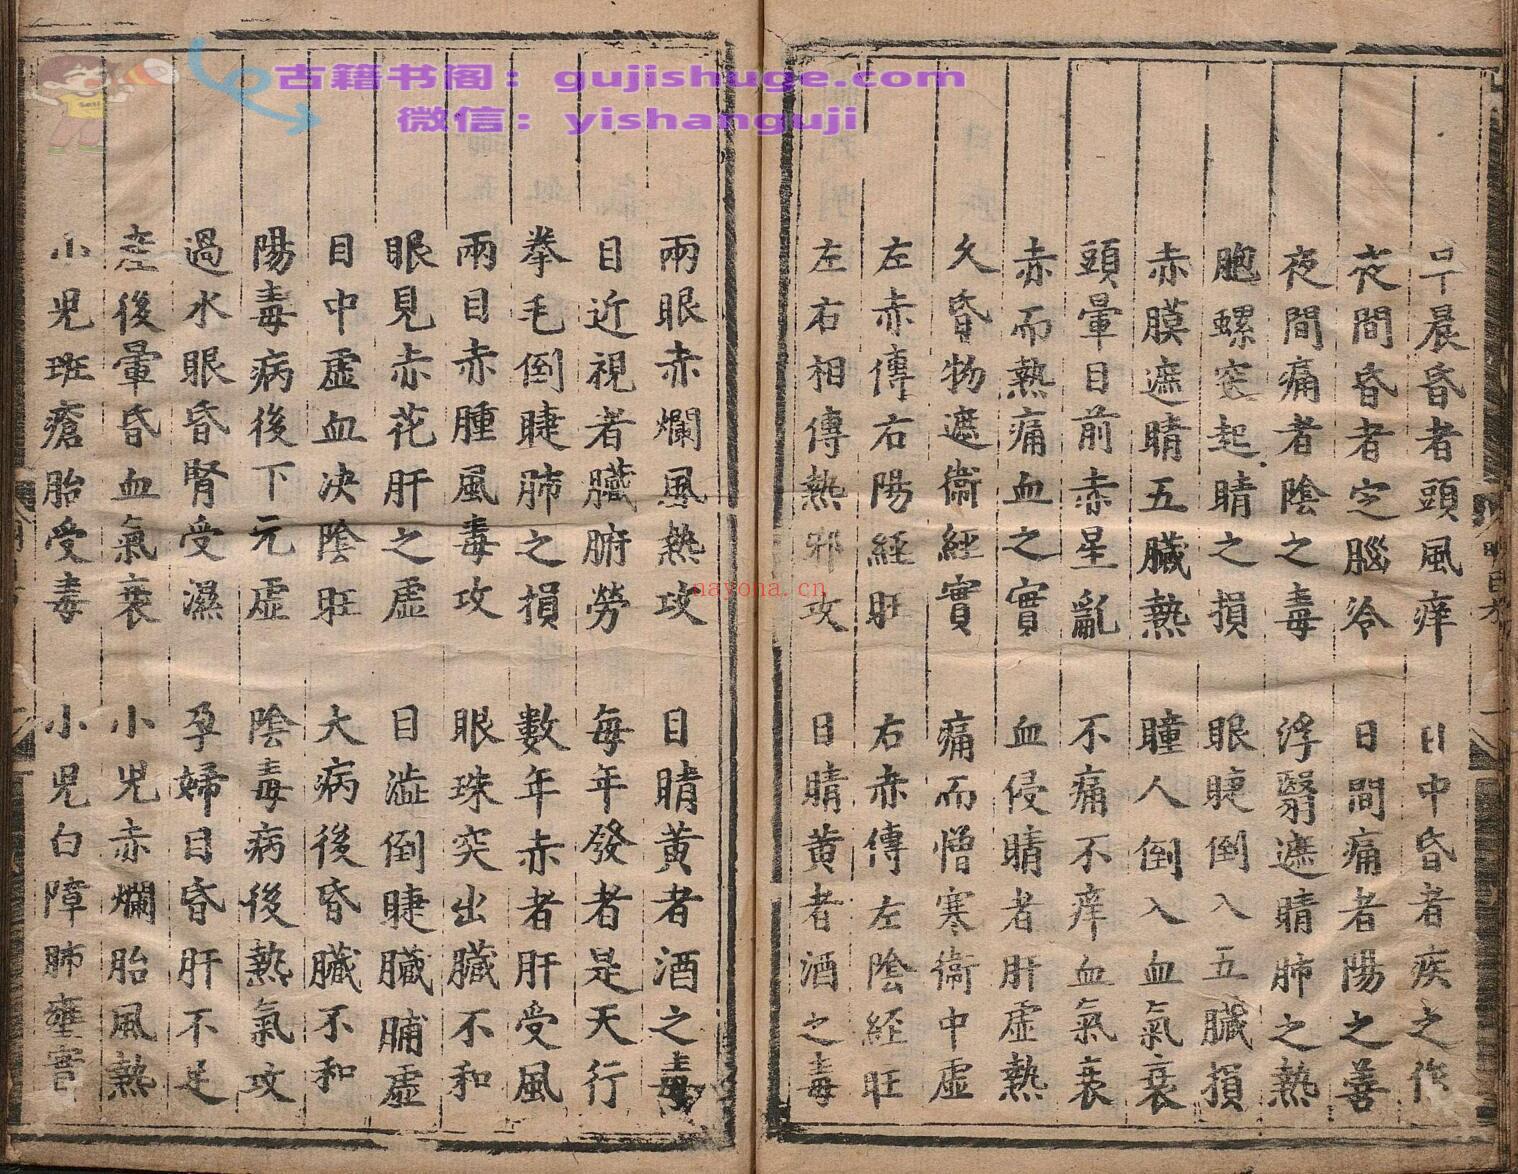 古籍书阁：gujishuge.com
微信：yishanguji
nayona.cn
早晨昏者頭風痒　日中昏者疾之作
夜間昏者定腦冷　日間痛者陽之善
夜間痛者陰之毒　浮翳遮睛肺之熱
胞螺突起睛之損　眼睫倒入五臟損
赤膜遮睛五臟熱　瞳人倒入血氣衰
頭暈目前赤星亂　不痛不痒血氣衰
赤而熱痛血之實　血侵睛者肝虛熱
久昏物遮衛經實　痛而憎寒衛中虛
左赤傳右陽經旺　右赤傳左陰経旺
左右相傳熱邪攻　日睛黄者酒之毒
兩眼赤爛風熱攻　目睛黄者酒之毒
目近視者臟腑勞　每年發者是天行
拳毛倒睫肺之損　數年赤者肝受風
兩目赤腫風毒攻　眼珠突出臟不和
眼見赤花肝之虛　目澁倒睫臟脯虛
目中虛血决陰旺　大病後昏臟不和
陽毒病後下元虛　陰毒病後熱氣攻
過水眼昏腎受濕　孕婦目昏肝不足
産後暈昏血氣衰　小兒赤爛胎風熱
小兒班瘡胎受毒　小兒白障肺壅實